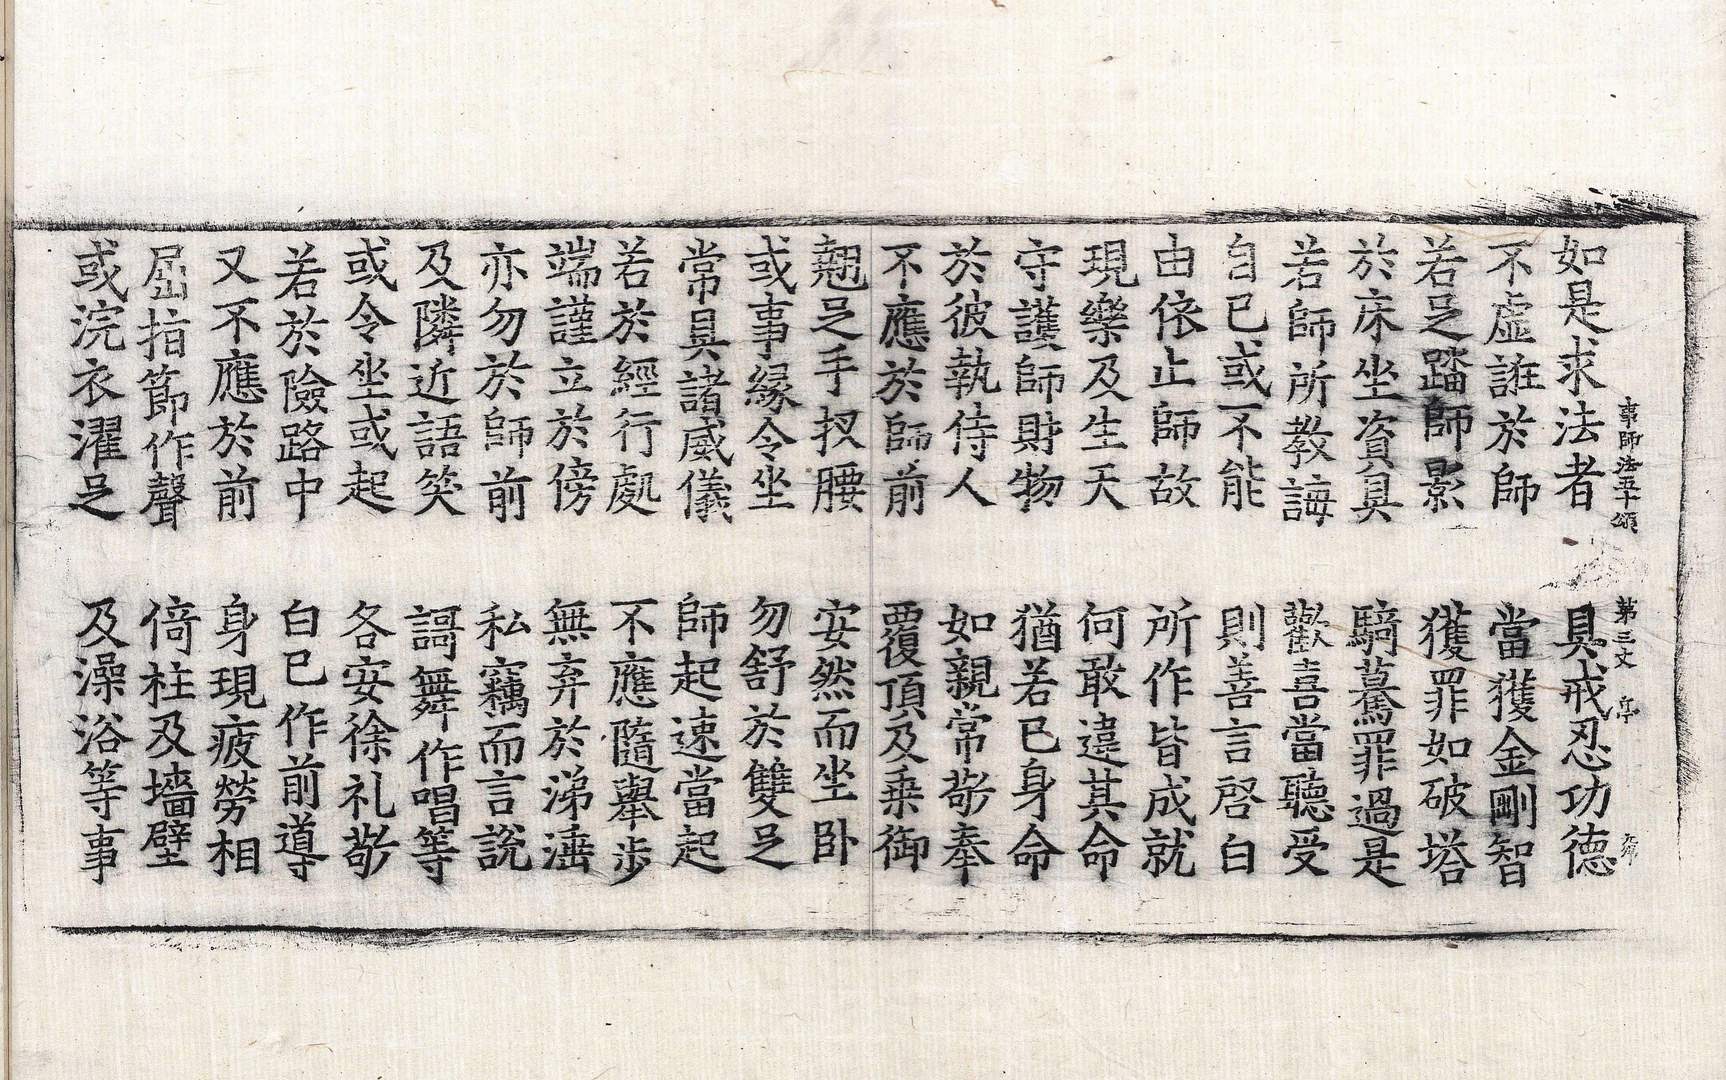 事師法五十頌 第三丈
如是求法者 具戒忍功德
不虛誑於師 當獲金剛智
若足蹈師影 獲罪如破塔
於床坐資具 騎驀罪過是
若師所教誨 歡喜當聽受
自已或不能 則善言啓白
由依止師故 所作皆成就
現樂及生天 何敢違其命
守護師財物 猶若已身命
於彼執侍人 如親常敬奉
不應於師前 覆頂及乗御
翹足手扠腰 安然而坐卧
或事緣令坐 勿舒於雙足
常具諸威儀 師起速當起
若於經行處 不應隨舉步
端謹立於傍 無弃於涕涶
亦勿於師前 私竊而言說
及隣近語笑 謌舞作唱等
或令坐或起 各安徐礼敬
若於險路中 白已作前導
又不應於前 身現疲勞相
屈指節作聲 倚柱及墻壁
或浣衣濯足 及澡浴等事